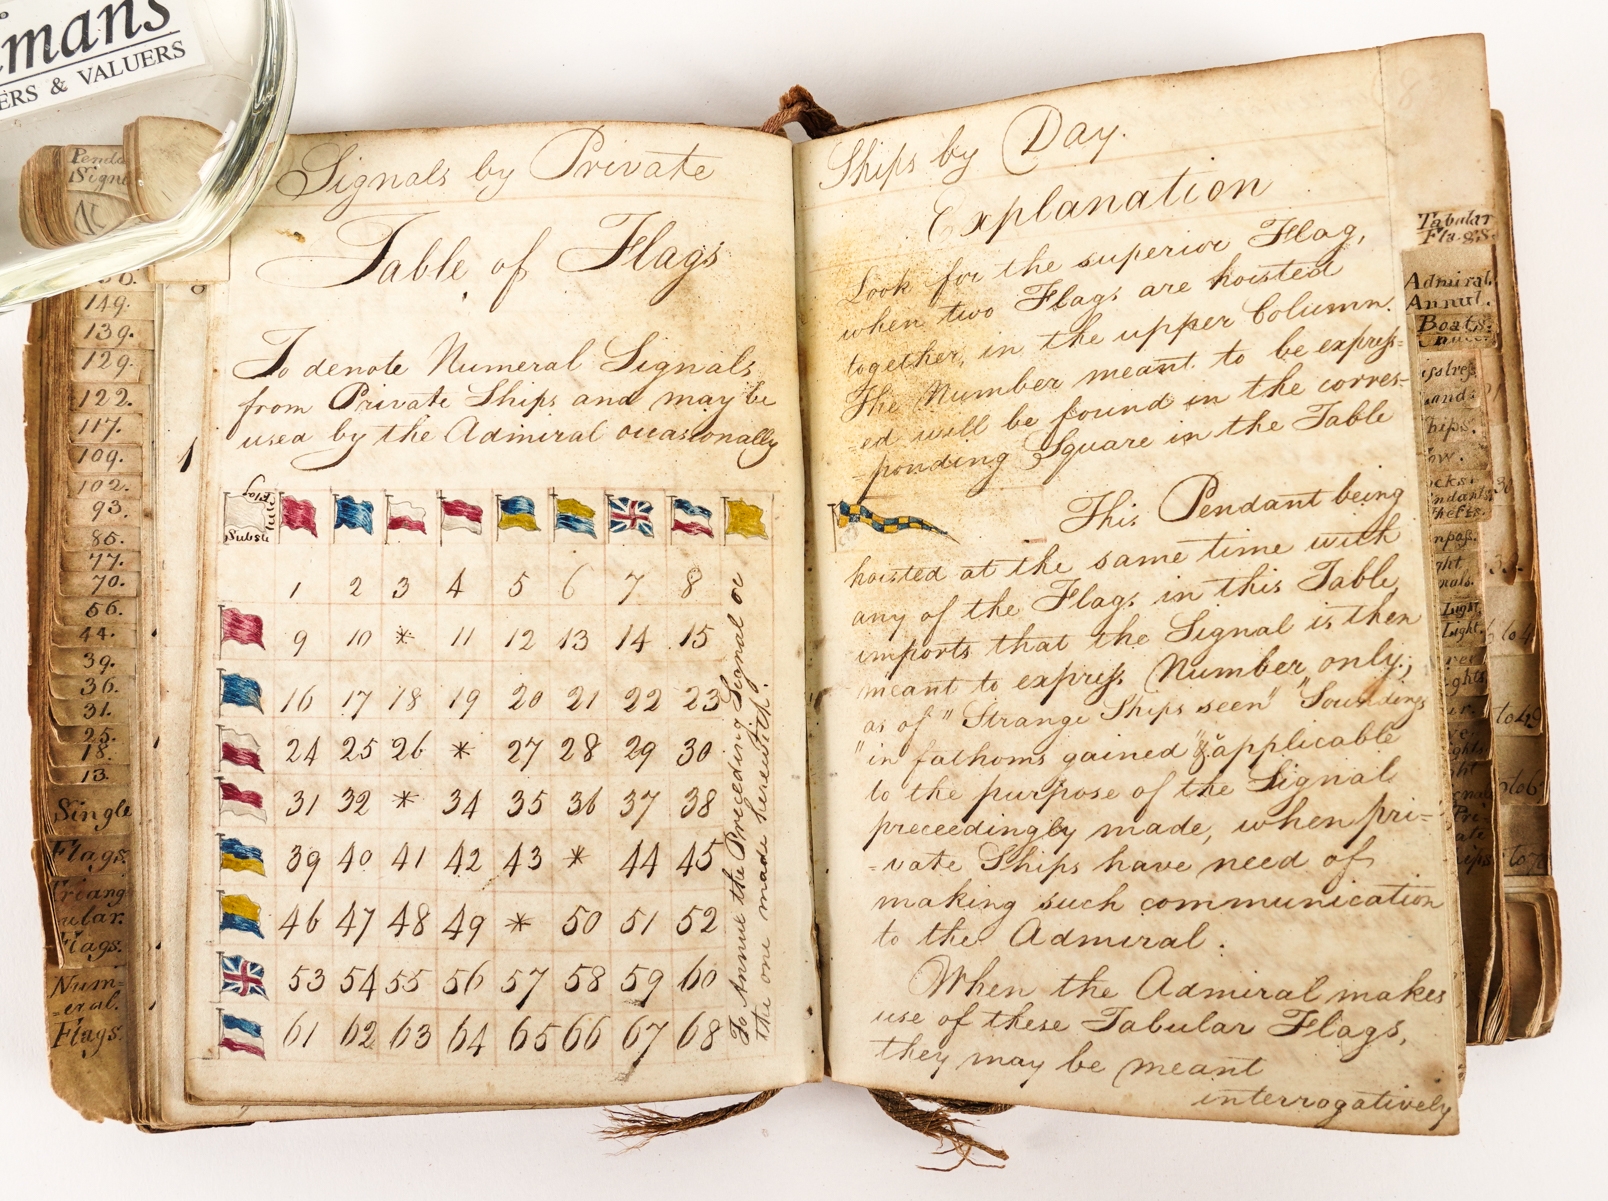 mans
ERS & VALUERS
Signals by Private
Table of Flags
To denote Numeral Signals
from Private Ships and may be
used by the Admiral occasionally
Substi tute Flag
1 2 3 4 5 6 7 8
9 10 * 11 12 13 14 15
16 17 18 19 20 21 22 23
24 25 26 * 27 28 29 30
31 32 * 34 35 36 37 38
39 40 41 42 43 * 44 45
46 47 48 49 * 50 51 52
53 54 55 56 57 58 59 60
61 62 63 64 65 66 67 68
To Annul the Preceeding Signal or
the one made herewith.
Ships by Day.
Explanation
Look for the superior Flag,
when two Flags are hoisted
together, in the upper Column.
The Number meant to be express=
ed will be found in the corres=
ponding Square in the Table
This Pendant being
hoisted at the same time with
any of the Flags in this Table,
imports that the Signal is then
meant to express Number only;
as of "Strange Ships seen" "Soundings
"in fathoms gained" & applicable
to the purpose of the Signal
preceedingly made, when pri=
=vate Ships have need of
making such communication
to the Admiral.
When the Admiral makes
use of these Tabular Flags,
they may be meant
interrogatively
Signa
149.
139.
129.
122.
117.
109.
102.
93.
85.
77.
70.
56.
44.
39.
36.
31.
25.
18.
13.
Single
Flags.
Triang
ular.
Flags.
Num=
=eral.
Flags.
1
Tabular
Flags.
Admiral.
Annul.
Boats.
Light.
Light.